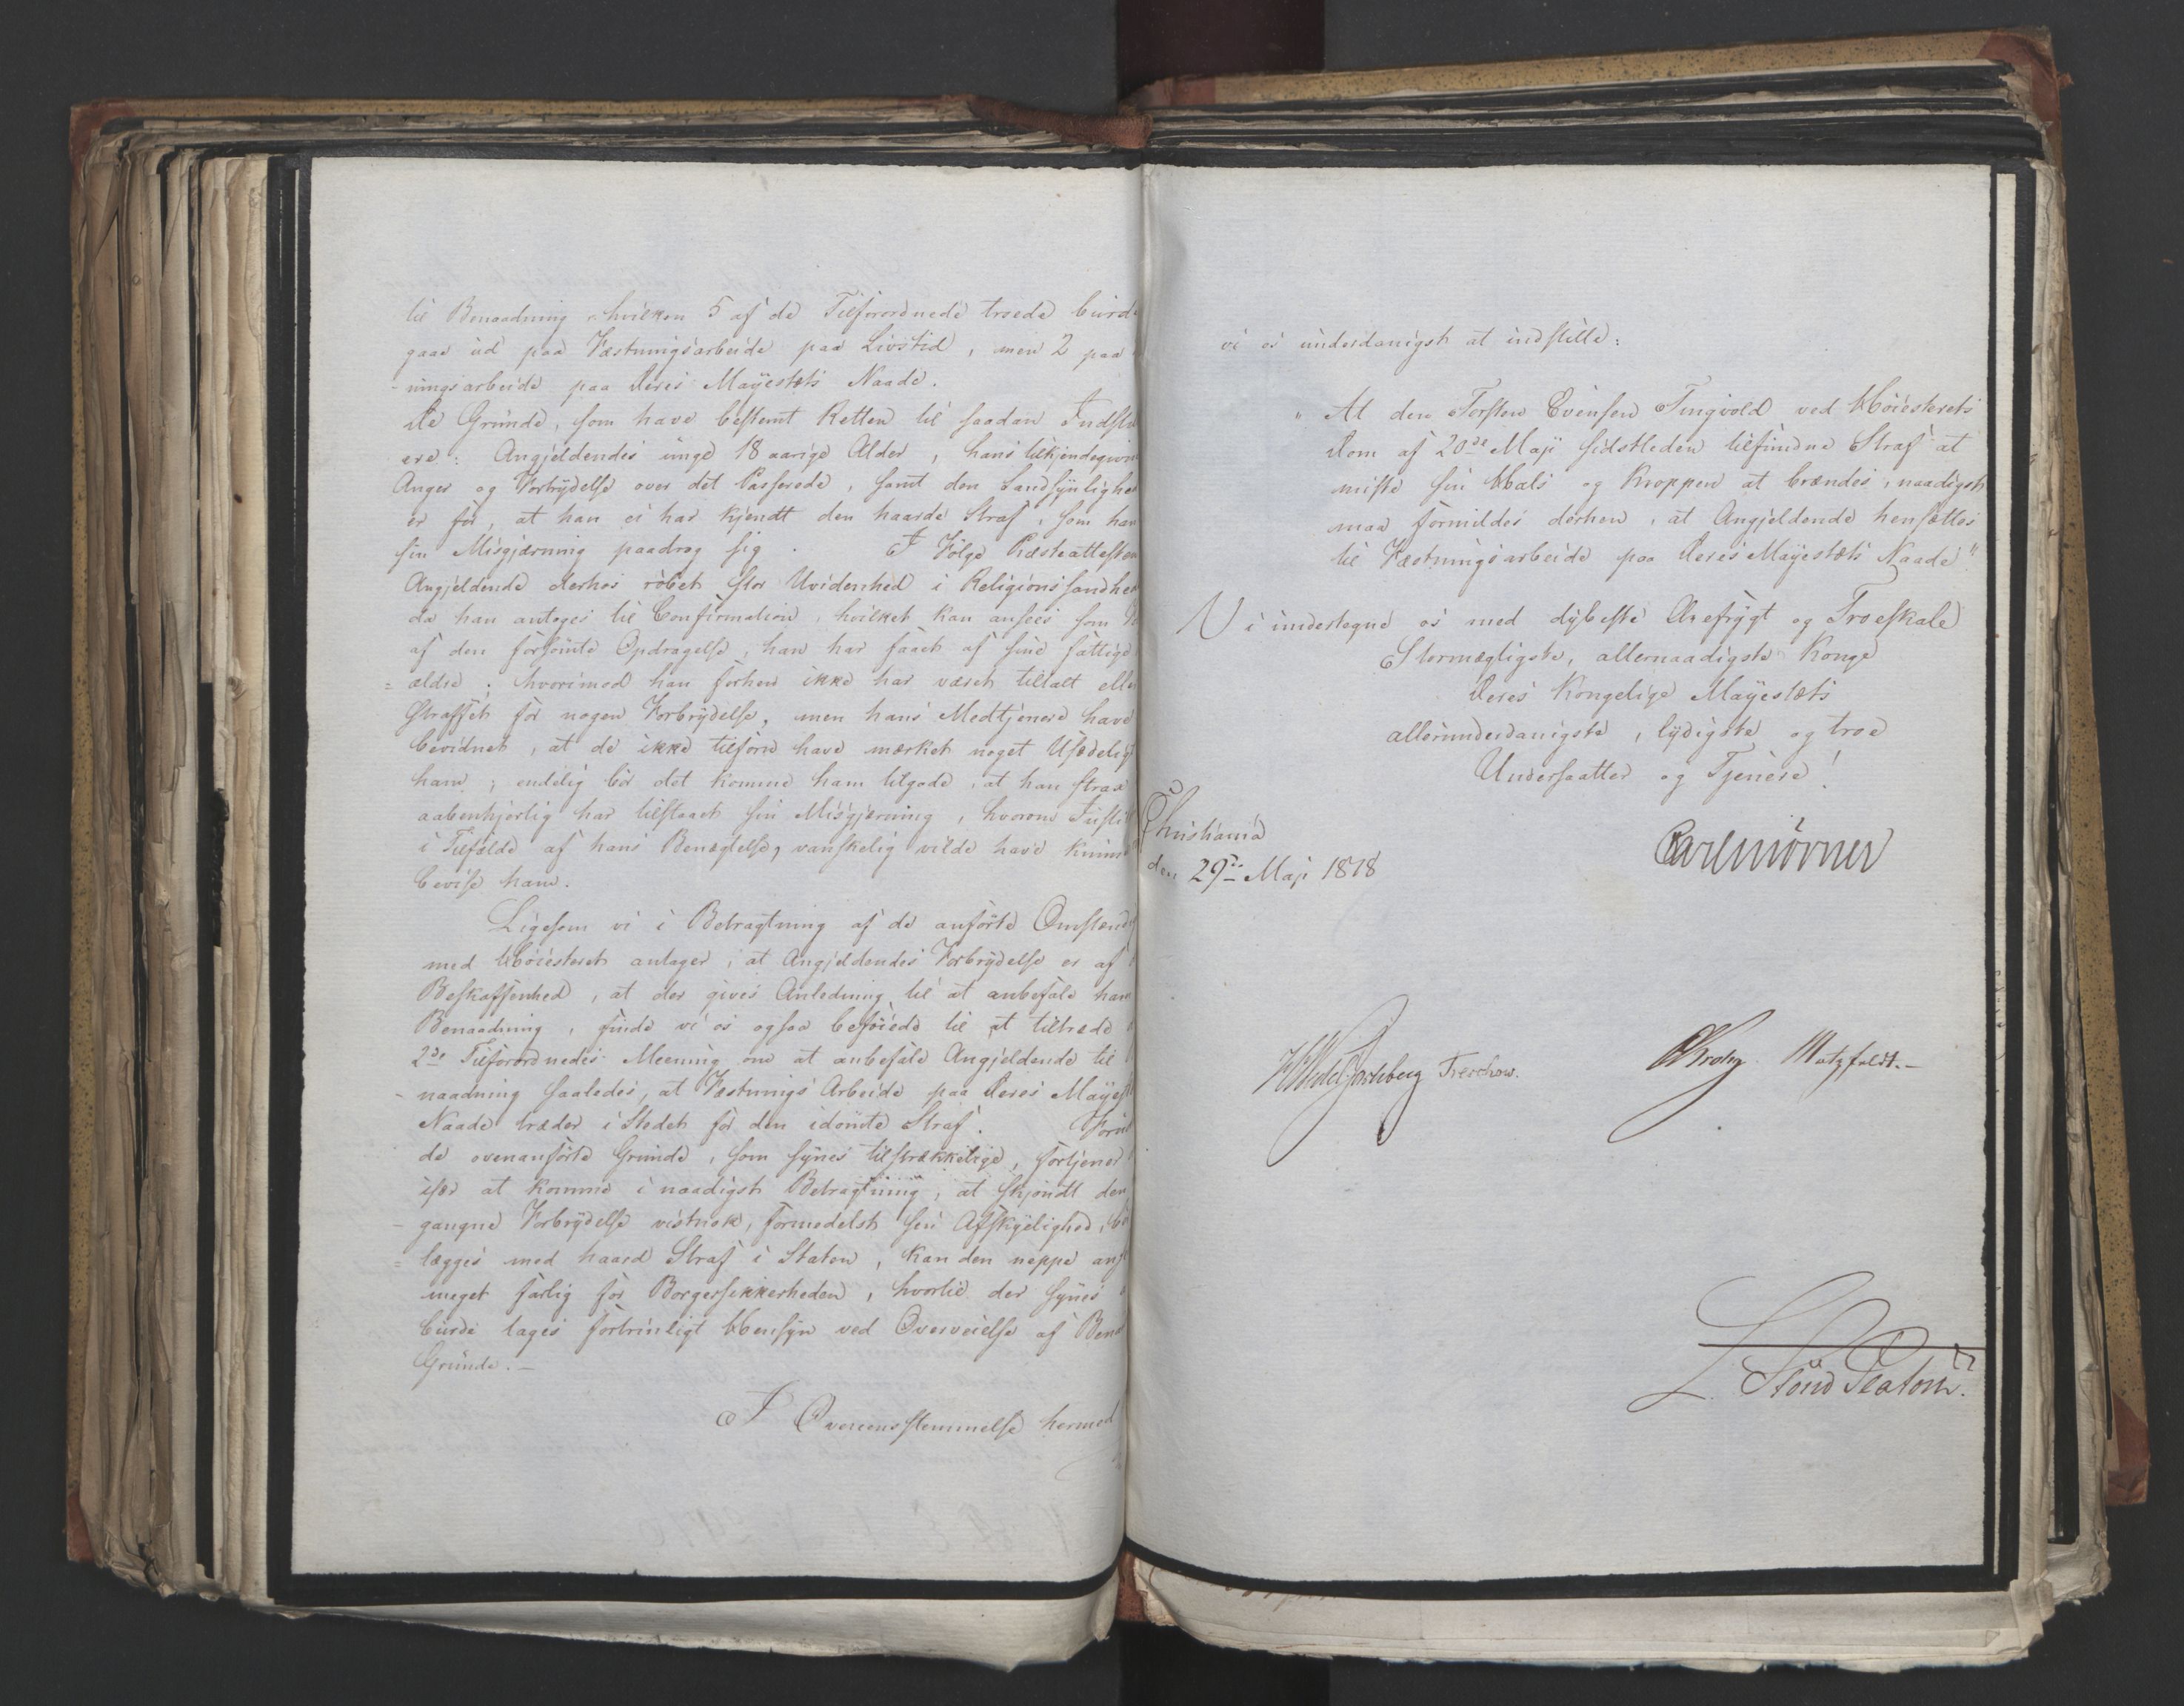 til Benaadning, hvilken 5 af de Tilforordnede troede burde
gaae ud paa Fæstningsarbeide paa Livstid, men 2 paa
-ningsarbeide paa Deres Majestæts Naade.
De Grunde, som have bestemt Retten til saadan Indstil
ere: Angjeldendes unge 18 aarige Alder, hans tilkjendegivne
Anger og Fortrydelse over det Passerede, samt den Sandsynlighed
er for, at han ei har kjendt den haarde Straf, som han
sin Misgjærning paadrog sig. I Følge Præsteattesten
Angjeldende derhos røbet stor Uvidenhed i Religionssandhe
da han antoges til Confirmation, hvilket kan ansees som
af den forsømte Opdragelse, han har faaet af sine fattige
=ældre; hvorimod han forhen ikke har været tiltalt eller
straffet for nogen Forbrydelse, men hans Medtjenere have
bevidnet, at de ikke tilforn have mærket noget Usædeligt
ham; endelig bør det komme ham tilgode, at han strax
aabenhjertig har tilstaaet sin Misgjerning, hvorom Justi
i Tilfælde af hans Benægtelse, vanskelig vilde have kunne
bevise ham.
Ligesom vi i Betragtning af de anførte Omstænd
med Høiesteret antager, at Angjeldendes Forbrydelse er af
Beskaffenhed, at der gives Anledning til at anbefale ham
Benaadning, finde vi os ogsaa beføiede til at tiltræde
2de Tilforordnedes Meening om at anbefale Angjeldende til
-naadning saaledes, at Fæstnings Arbeide paa Deres Majest
Naade træder i Stedet for den idømte Straf. Foru
de ovenanførte Grunde, som synes tilstrækkelige, fortjener
især at komme i naadigst Betragtning, at skjøndt den
-gangne Forbrydelse vistnok, formedelst sin Afskyelighed, bør
=lægges med haard Straf i Staten, kan den neppe ans
meget farlig for Borgersikkerheden, hvortil der synes
burde tages fortrinligt Hensyn ved Overveielse af Bena
Grunde.-
I Overeensstemmelse hermed
vi os underdanigst at indstille:
"At den Torsten Evensen Tingvold ved Høiesterets
Dom af 20de Maji sidstleden tilfundne Straf at
miste sin Hals og Kroppen at brændes, naadigst
maa formildes derhen, at Angjeldende hensættes
til Fæstningsarbeide paa Deres Majestæts Naade".
Vi undertegne os med dybeste Ærefrygt og Troeskab
Stormægtigste, allernaadigste Konge
Deres Kongelige Majestæts
allerunderdanigste, lydigste og troe
Undersaatter og Tjenere!
Christiania
den 29de Maji 1818
Carl Mörner
HWedel Jarlsberg Treschow. CKrohg Motzfeldt.-
L. Stoud Platou.